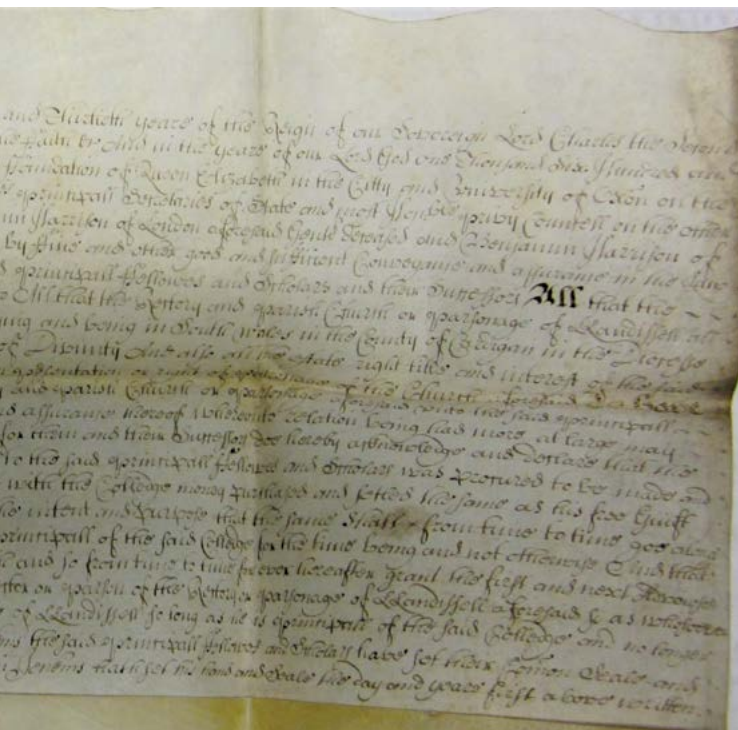 and Thirtieth yeares of the Reign of our Sovereign Lord Charles the Second
the Faith &c And in the yeares of our Lord God one Thousand Six Hundred and
Foundation of Queen Elizabeth in the Citty and University of Oxon on the
principall Secretaries of State and most Honble privy Councell on the other
Harrison of London aforesaid Gents deceased and Benjamin Harrison of
by Fine and other good and sufficient Conveyance and assurance in the Law
principall Fellowes and Schollars and their Successors All that the
All that the Rectory and parish Church or parsonage of Llandissell all
and being in South Wales in the County of Cardigan in the Diocesse
of Divinity And also all the estate right title and interest of the said
presentation or right of patronage of the Church aforesaid
and parish Church or parsonage aforesaid unto the said principall
assurance thereof whereunto relation being had more at large may
for them and their Successors doe hereby acknowledge and declare that the
to the said principall Fellowes and Schollars was procured to be made and
with the Colledge money purchased and setled the same as his free Guift
the intent and purpose that the same shall from time to time goe along
principall of the said Colledge for the time being and not otherwise And that
and so from time to time for ever hereafter grant the first and next Advowson
or parson of the Rectory or parsonage of Llandissell aforesaid & as
of Llandissell so long as he is principall of the said Colledge and no longer
the said principall Fellowes and Schollars have set their Comon Seale and
Jenkins hath set his hand and Seale the day and yeares first above written